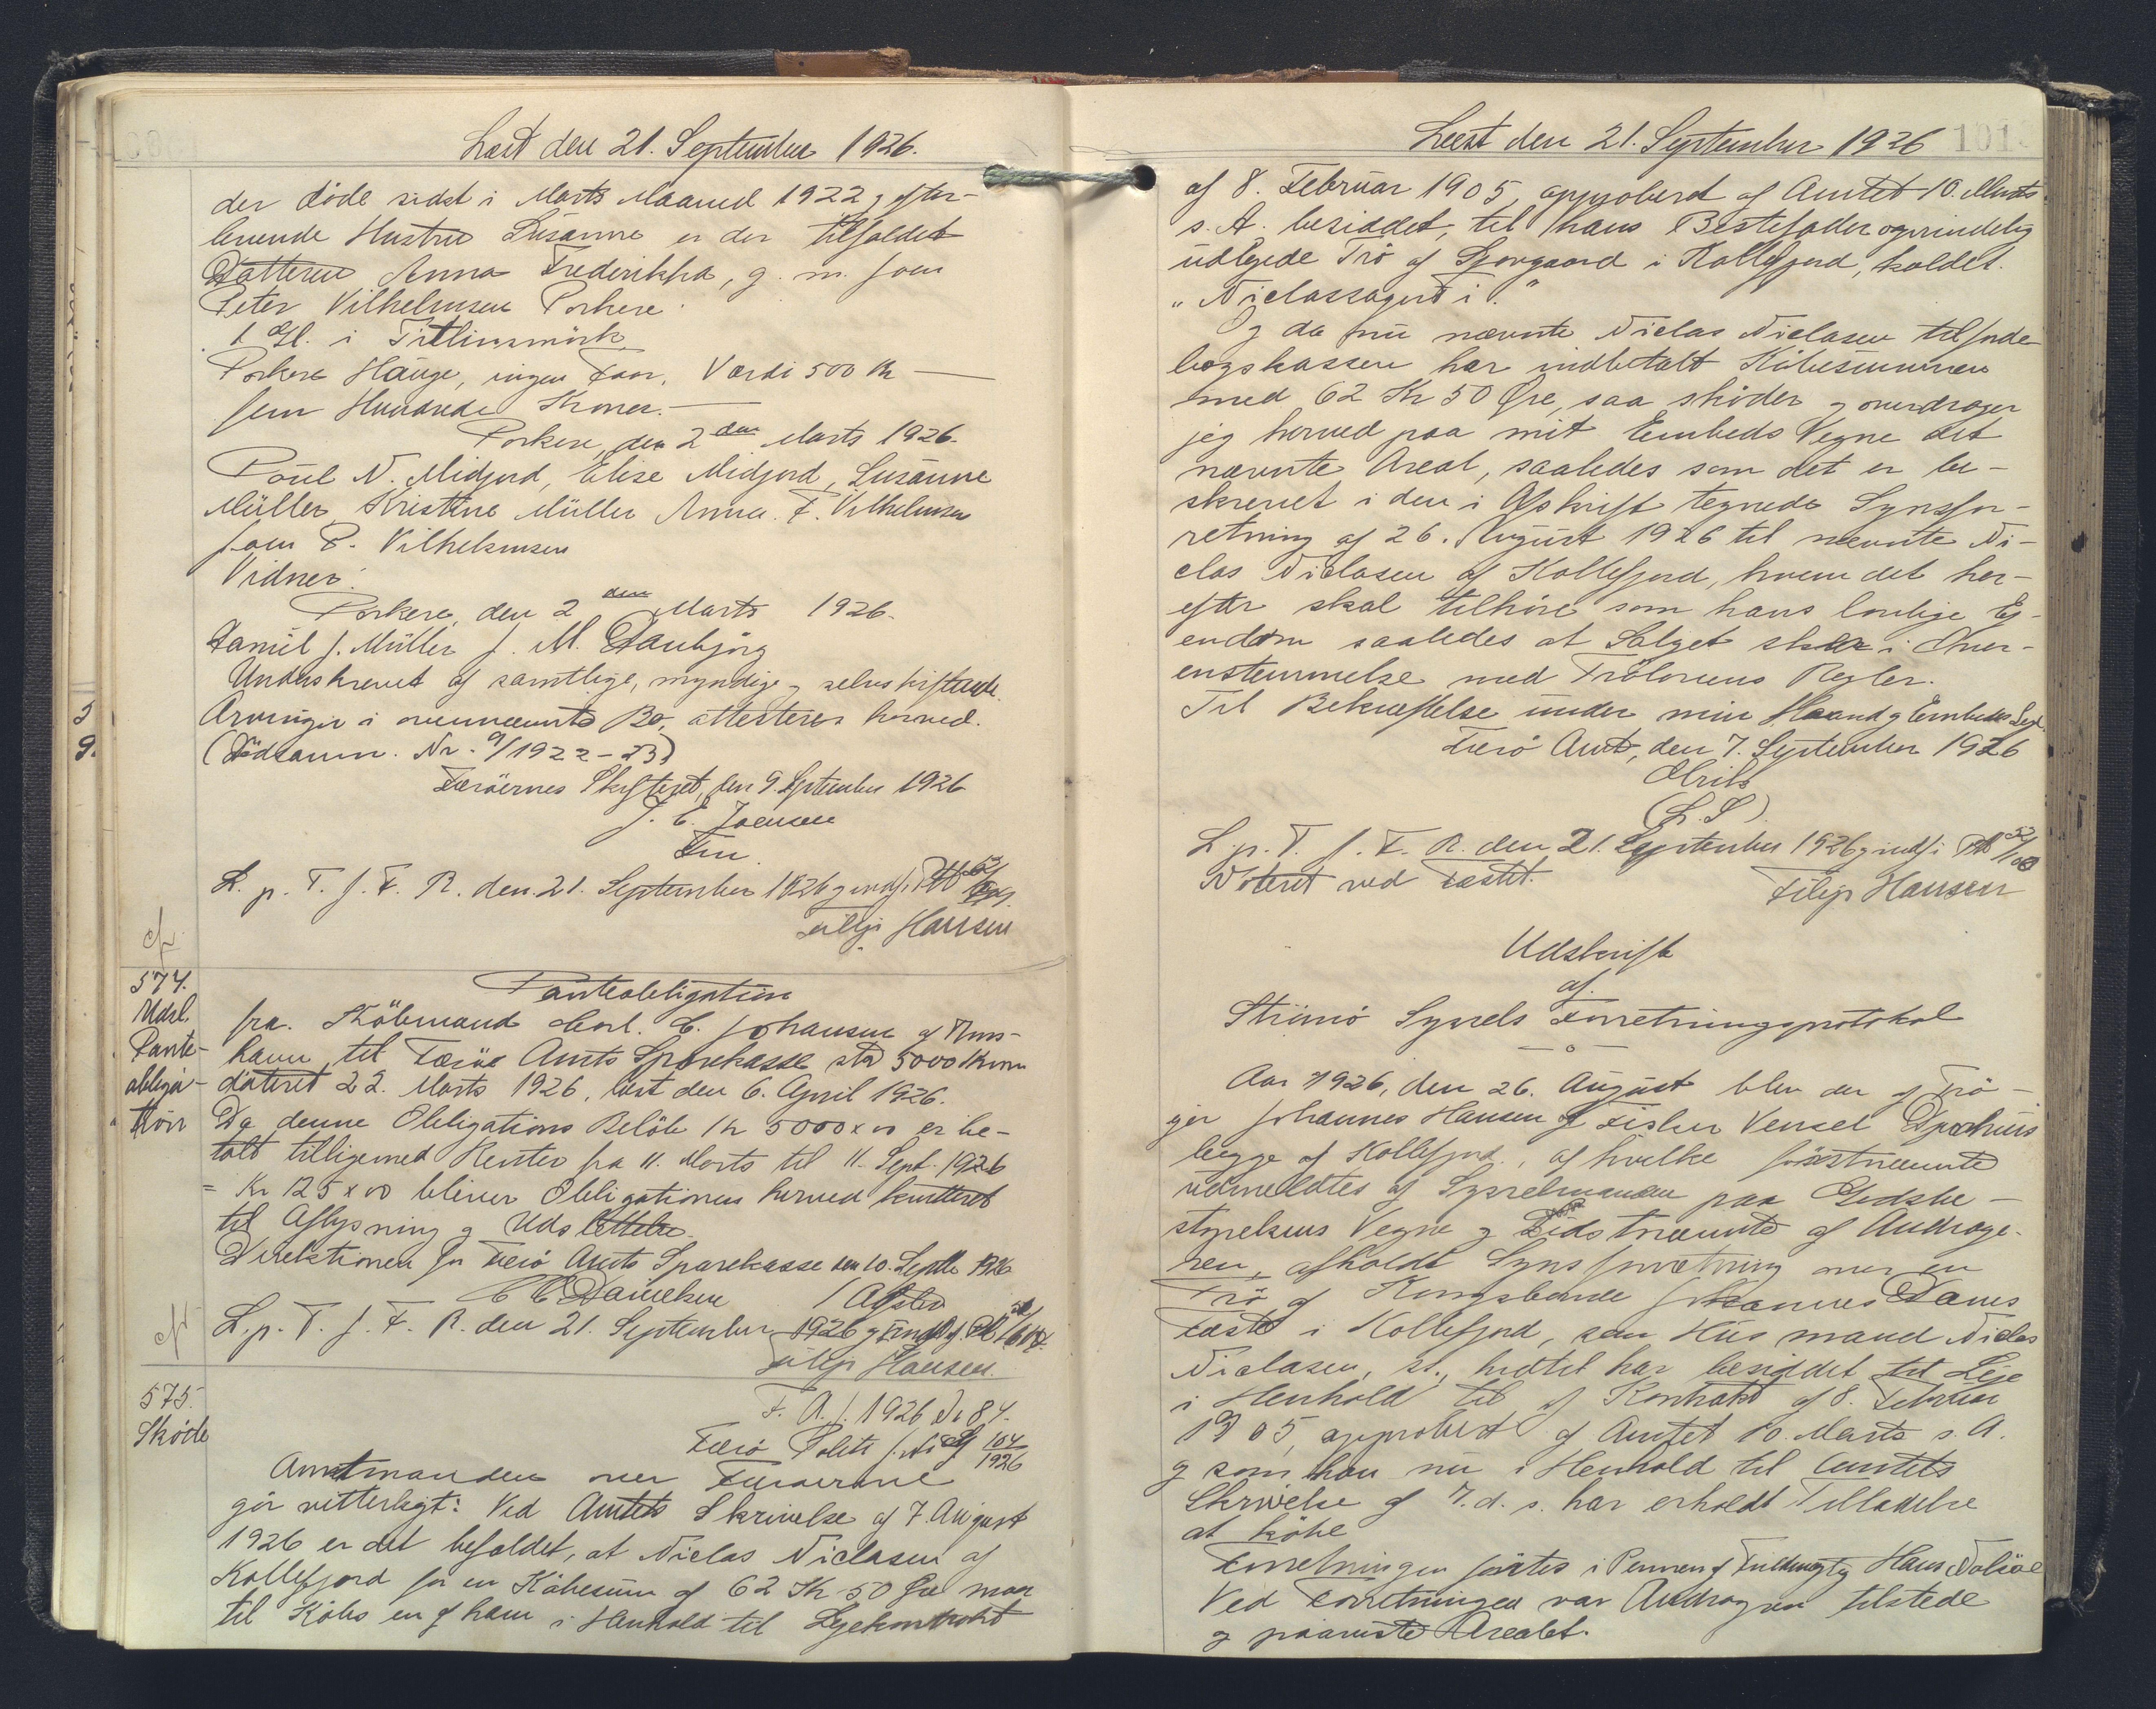 Læst den 21. September 1926.
der döde sidst i Marts Maaned 1922 g efter-
levende Hustru Susanne er der tilfaldet
Datteren Anna Frederikka, g. m. Joen
Peter Vilhelmsen Porkere:
1 Gl. i Titlinsmörk
Porkere Hauge, ingen Faar. Værdi 500 Kr —
fem Hundrede Kroner. —
Porkere, den 2den Marts 1926.
Poul N. Midjord, Elise Midjord, Susanne
Müller Kristine Müller Anna F. Vilhelmsen
Joen P. Vilhelmsen
Vidner:
Porkere, den 2den Marts 1926.
Daniel J. Müller J. M. Danbjörg
Underskrevet af samtlige, myndige g selvskiftende
Arvinger i ovennævnte Bo, attesteres herved.
(Dödsanm. Nr. 9/1922-23)
Færöernes Skifteret, den 9. September 1926
J. E. Joensen
Fm.
L. p. T. f. F. R. den 21. September 1926 g indf. i
Filip Hansen
574.
Udsl.
Pante-
obliga-
tion
Panteobligation
fra Köbmand Carl. C. Johansen af Thors-
havn til Færöe Amts Sparekasse stor 5000 Kroner
dateret 22. Marts 1926, læst den 6. April 1926.
Da denne Obligations Belöb Kr 5000 x 00 er be-
talt tilligemed Renter fra 11. Marts til 11. Sept. 1926
= Kr 125 x 00 bliver Obligationen herved kvitteret
til Aflysning g Udslettelse.
Direktionen for Færö Amts Sparekasse den 10. Septbr 1926
C C Danielsen /
L. p. T. f. F. R. den 21. September 1926 g
Filip Hansen.
575.
Sköde
F. A. J. 1926 Nr 84.
Færö Politi J. Nr 104/1926
Amtmanden over Færöerne
gör vitterligt: Ved Amtets Skrivelse af 7. August
1926 er det befaldet, at Niclas Niclasen af
Kollefjord for en Köbesum af 62 Kr 50 Øre maa
til Köbs en af ham i Henhold til Lejekontrakt
Læst den 21. September 1926
101
af 8. Februar 1905, approberet af Amtet 10. Marts
s. A. besiddet, til hans Bestefader oprindelig
udlejede Trö af Gjorgaard i Kollefjord, kaldet.
"Niclassagerði."
Og da nu nævnte Niclas Niclasen til Jorde-
bogskassen har indbetalt Köbesummen
med 62 Kr 50 Øre, saa sköder g overdrager
jeg herved paa mit Embeds Vegne det
nævnte Areal, saaledes som det er be-
skrevet i den i Afskrift tegnede Synsfor-
retning af 26. August 1926 til nævnte Ni-
clas Niclasen af Kollefjord, hvem det her-
efter skal tilhöre som hans lovlige Ej-
endom saaledes at Salget sker i Over-
ensstemmelse med Trölovens Regler.
Til Bekræftelse under min Haand g Embeds Segl.
Færö Amt, den 7. September 1926
(L. S.)
L. p. T. f. F. R. den 21. September 1926 g indf. i
Noteret ved Fæstet.
Filip Hansen
Udskrift
af
Strömö Syssels Forretningsprotokol
— o —
Aar 1926, den 26. August blev der af Trö-
ger Johannes Hansen g Fisker Vensel Djurhuus
begge af Kollefjord, af hvilke förstnævnte
udmeldtes af Sysselmanden paa Godsbe-
styrelsens Vegne g Sidstnævnte af Andrage-
ren, afholdt Synsforretning over en
Trö af Kongsbonde Johannes Dams
Fæste i Kollefjord, som Husmand Niclas
Niclasen, st., hidtil har besiddet til Leje
i Henhold til af Kontrakt af 8. Februar
1905, approberet af Amtet 10. Marts s. A.
g som han nu i Henhold til Amtets
Skrivelse af 7. d. s. har erholdt Tilladelse
at köbe
Forretningen förtes i Pennen af Fuldmægtig Hans
Ved Forretningen var Andrageren tilstede
g paaviste Arealet.